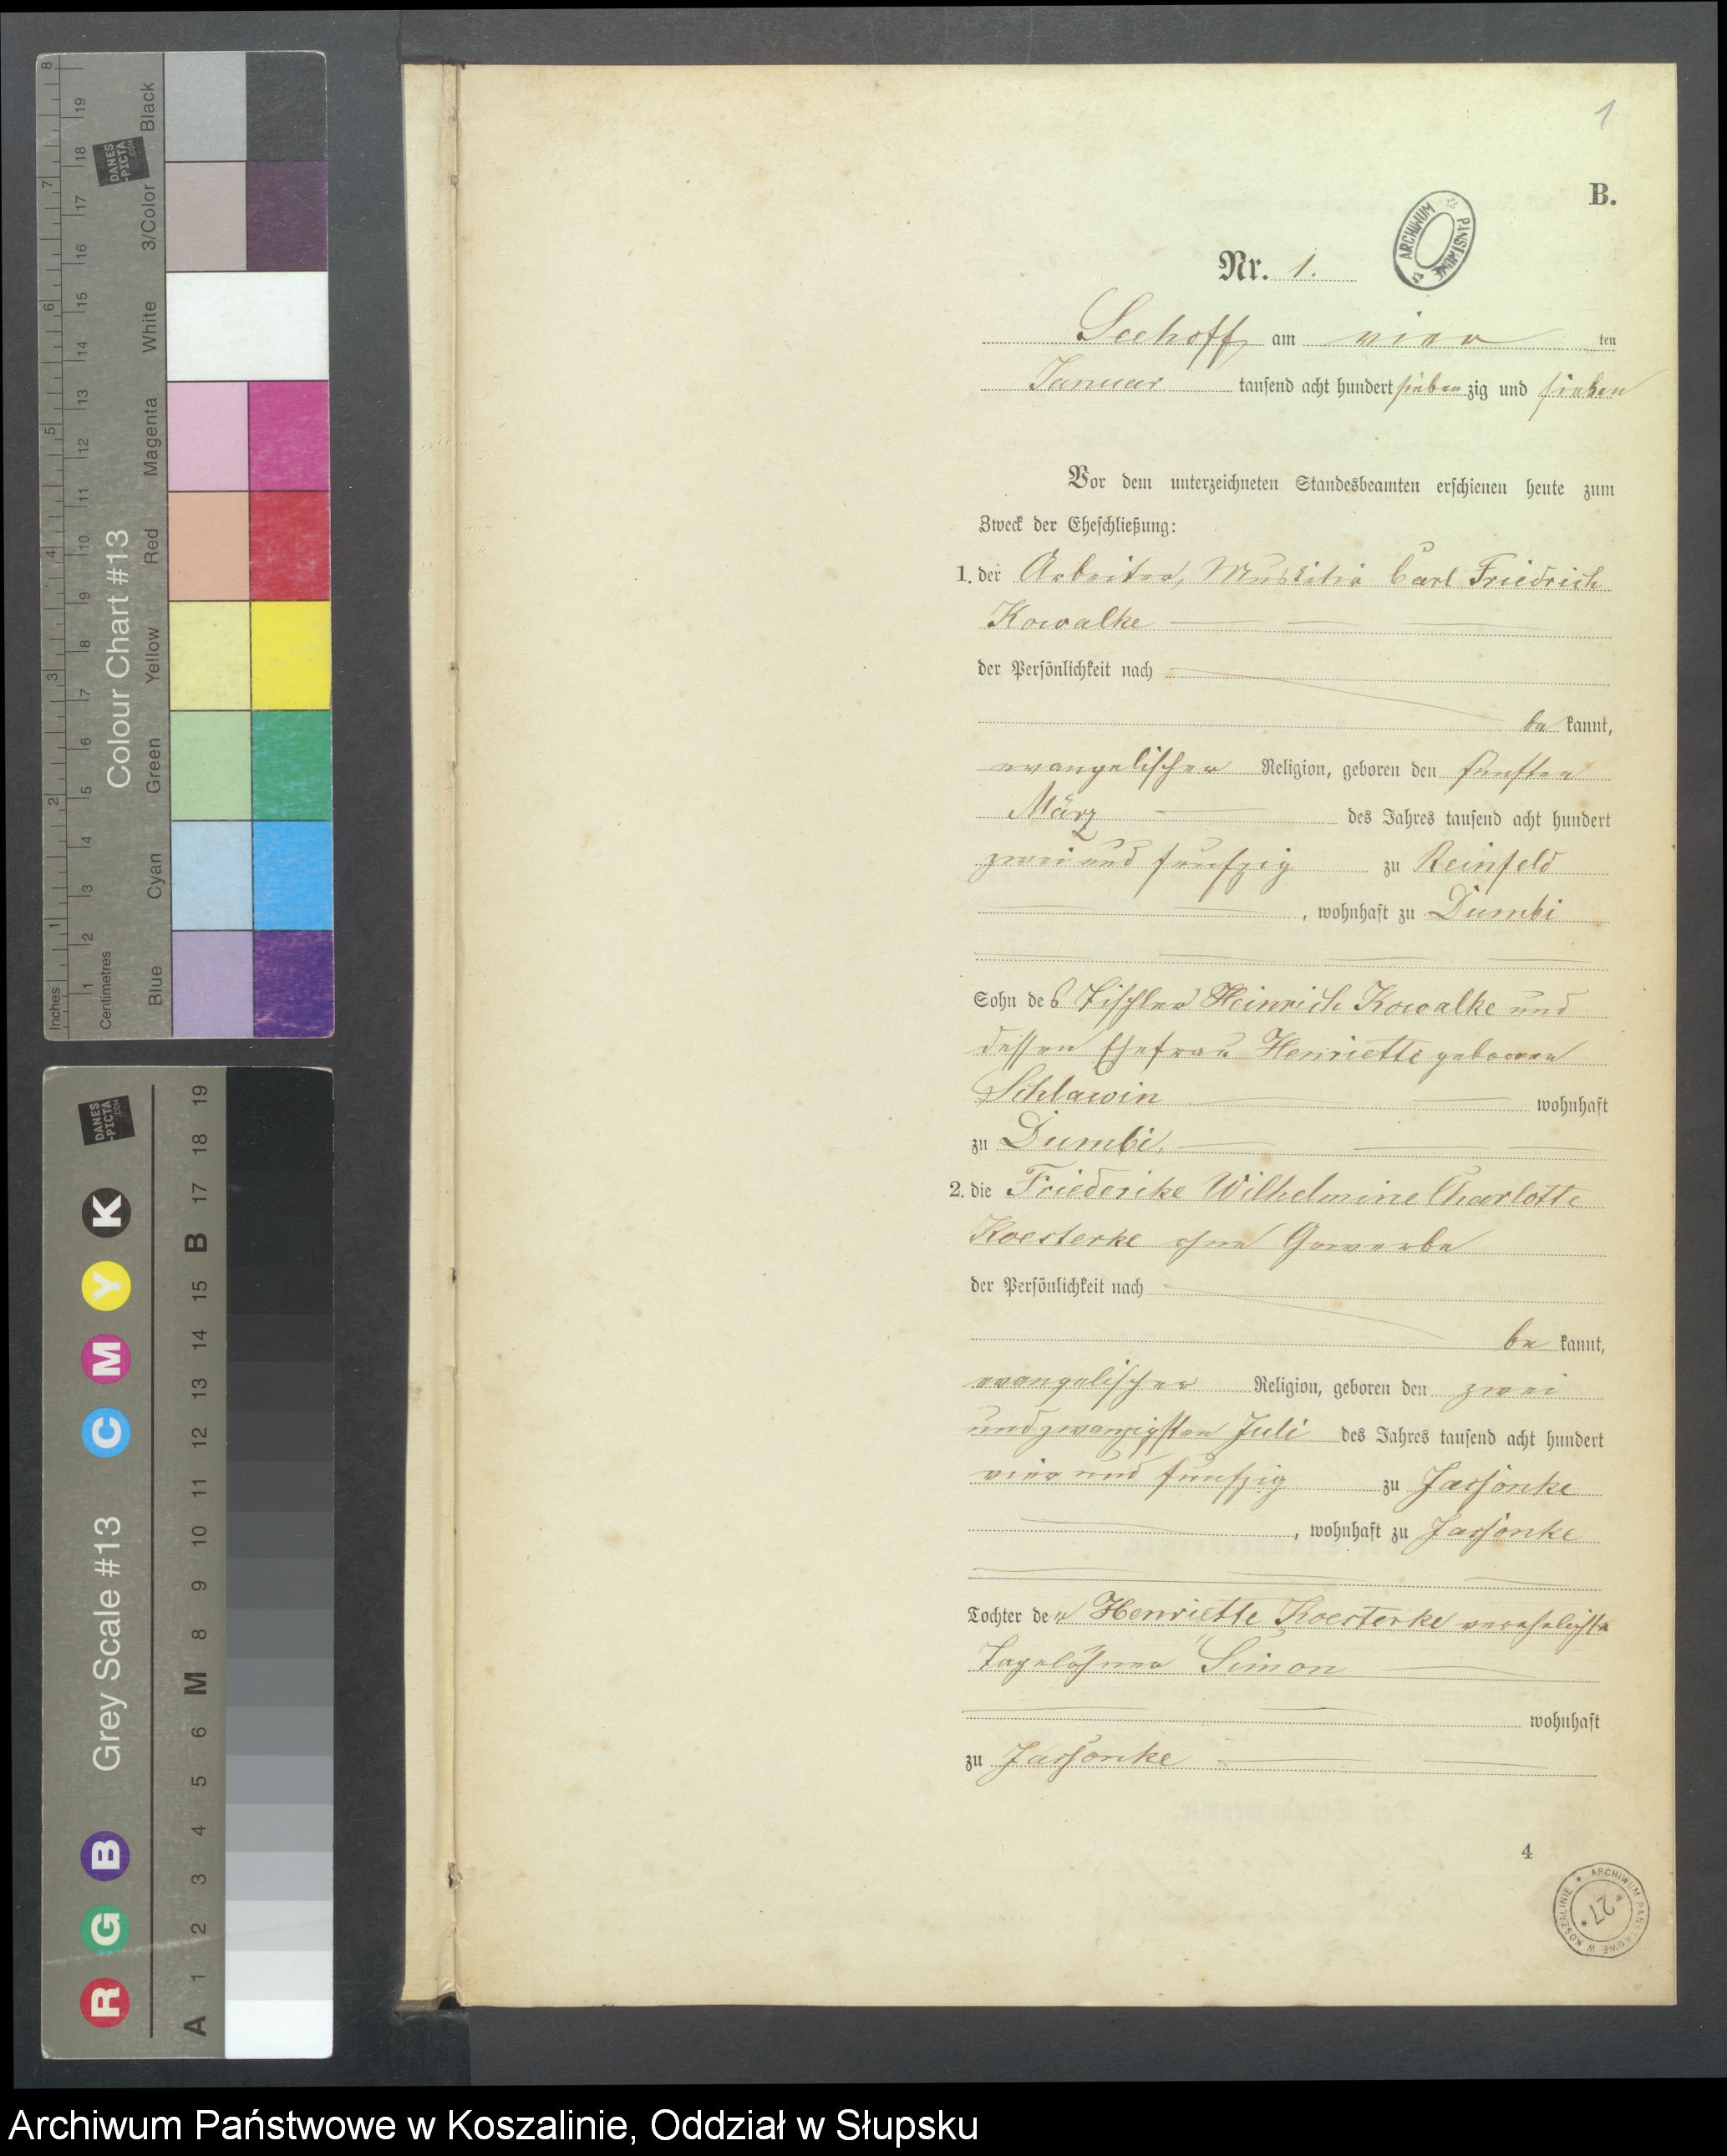 1
B.
ARCHIWUM PAŃSTWOWE
Nr. 1.
Seehoff am vier ten
Januar tausend acht hundert sieben zig und sieben
Vor dem unterzeichneten Standesbeamten erschienen heute zum
Zweck der Eheschließung:
1. der Arbeiter, Musketir Carl Friedrich
Kowalke
der Persönlichkeit nach
be kannt,
evangelischer Religion, geboren den fünften
März des Jahres tausend acht hundert
zwei und fünfzig zu Reinfeld
, wohnhaft zu Dumbi
Sohn des Tischler Heinrich Kowalke und
dessen Ehefrau Henriette geborene
Schlawin wohnhaft
zu Dumbi,
2. die Friederike Wilhelmine Charlotte
Koesterke ohne Gewerbe
der Persönlichkeit nach
be kannt,
evangelischer Religion, geboren den zwei
und zwanzigsten Juli des Jahres tausend acht hundert
vier und fünfzig zu Jassonke
, wohnhaft zu Jassonke
Tochter der Henriette Koesterke verehelichte
Tagelöhner Simon
wohnhaft
zu Jassonke
4
ARCHIWUM PAŃSTWOWE W KOSZALINIE
27
8 7 6 5 4 3 2 1 Inches
19 18 17 16 15 14 13 12 11 10 9 8 7 6 5 4 3 2 1 Centimetres
DANES
-PICTA
.COM
Colour Chart #13
Black
3/Color
White
Magenta
Red
Yellow
Green
Cyan
Blue
DANES
-PICTA
.COM
Grey Scale #13
R G B C M Y K
A 1 2 3 4 5 6 M 8 9 10 11 12 13 14 15 B 17 18 19
Archiwum Państwowe w Koszalinie, Oddział w Słupsku